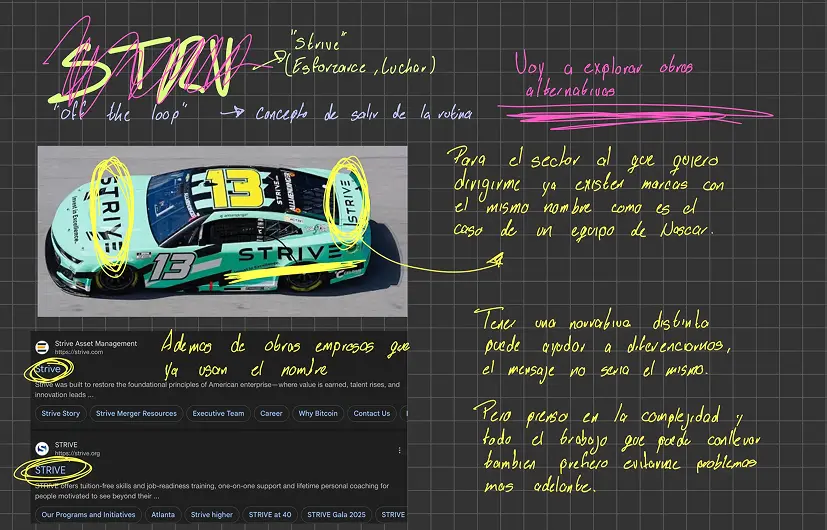 STRV
"Strive"
(Esforzarce, Luchar)
"Off the loop" → concepto de salir de la rutina
Voy a explorar obras
alternativas
STRIVE
Invest in Excellence.
13
STRIVE
ALLMENDINGER
STRIVE
STRIVE
13
Para el sector al que quiero
dirigirme ya existen marcas con
el mismo nombre como es el
caso de un equipo de Nascar.
Strive Asset Management
https://strive.com
Strive
Strive was built to restore the foundational principles of American enterprise—where value is earned, talent rises, and
innovation leads ...
Strive Story
Strive Merger Resources
Executive Team
Career
Why Bitcoin
Contact Us
Ademas de obras empresas que
ya usan el nombre
STRIVE
https://strive.org
STRIVE
STRIVE offers tuition-free skills and job-readiness training, one-on-one support and lifetime personal coaching for
people motivated to see beyond their ...
Our Programs and Initiatives
Atlanta
Strive higher
STRIVE at 40
STRIVE Gala 2025
STRIVE
Tener una narrativa distinta
puede ayudar a diferenciarnos,
el mensaje no seria el mismo.
Pero pienso en la complejidad y
todo el trabajo que puede conllevar
tambien prefiero evitarme problemas
mas adelante.